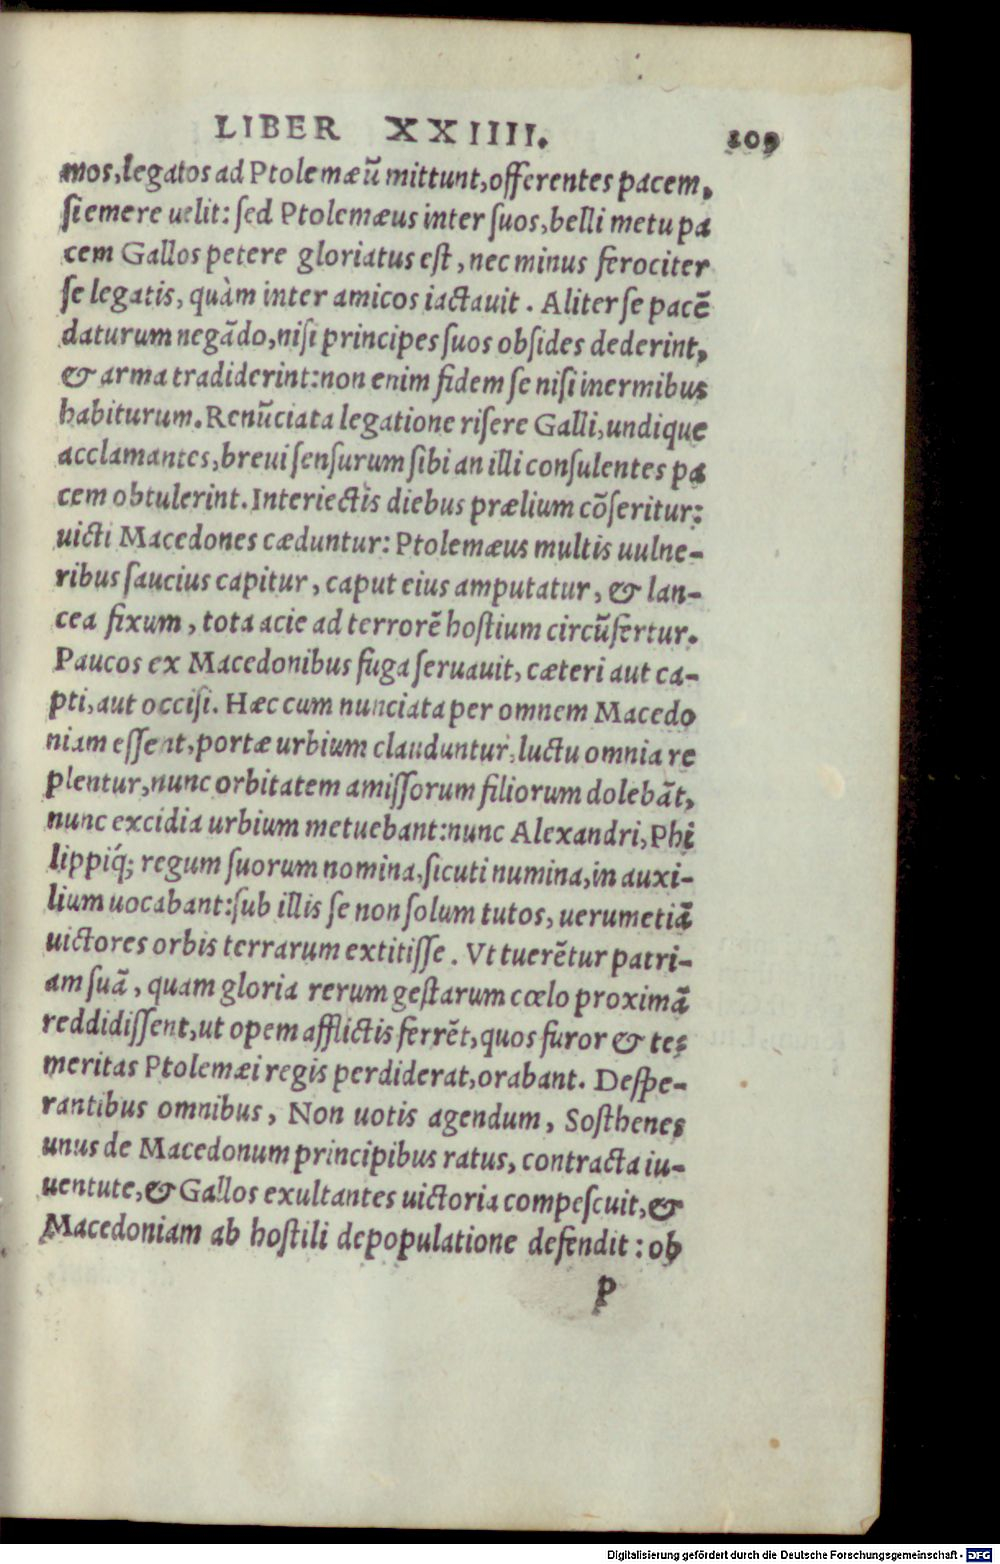 LIBER XXIIII. 109
mos,legatos ad Ptolemæũ mittunt,offerentes pacem,
ſi emere uelit: ſed Ptolemæus inter ſuos,belli metu pa
cem Gallos petere gloriatus eſt , nec minus ferociter
ſe legatis, quàm inter amicos iactauit . Aliter ſe pacẽ
daturum negãdo,niſi principes ſuos obſides dederint,
& arma tradiderint:non enim fidem ſe niſi inermibus
habiturum.Renũciata legatione riſere Galli,undique
acclamantes,breui ſenſurum ſibi an illi conſulentes pa
cem obtulerint.Interiectis diebus prælium cõſeritur:
uicti Macedones cæduntur: Ptolemæus multis uulne-
ribus ſaucius capitur , caput eius amputatur , & lan-
cea fixum , tota acie ad terrorẽ hoſtium circũfertur.
Paucos ex Macedonibus fuga ſeruauit, cæteri aut ca-
pti,aut occiſi. Hæc cum nunciata per omnem Macedo
niam eſſent,portæ urbium clauduntur,luctu omnia re
plentur,nunc orbitatem amiſſorum filiorum dolebãt,
nunc excidia urbium metuebant:nunc Alexandri,Phi
lippiq́; regum ſuorum nomina,ſicuti numina,in auxi-
lium uocabant:ſub illis ſe non ſolum tutos, uerumetiã
uictores orbis terrarum extitiſſe . Vt tuerẽtur patri-
am ſuã , quam gloria rerum geſtarum cœlo proximã
reddidiſſent,ut opem afflictis ferrẽt,quos furor & te-
meritas Ptolemæi regis perdiderat,orabant. Deſpe-
rantibus omnibus , Non uotis agendum , Soſthenes
unus de Macedonum principibus ratus, contracta iu-
uentute,& Gallos exultantes uictoria compeſcuit,&
Macedoniam ab hoſtili depopulatione defendit : ob
p
Digitalisierung gefördert durch die Deutsche Forschungsgemeinschaft - DFG